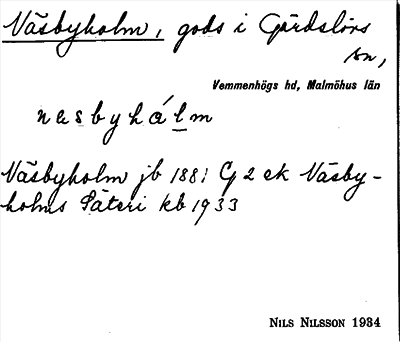 Näsbyholm, gods i Gärdslövs
sn,
Vemmenhögs hd, Malmöhus län
nɛsbyhålm
Näsbyholm jb 1881 G 2 ek Näsby-
holms Säteri kb 1933
NILS NILSSON 1934